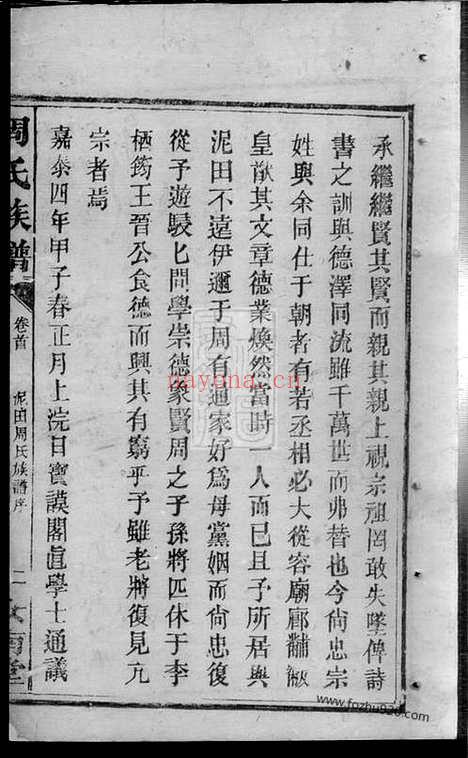 承繼繼賢其賢而親其親上視宗祖罔敢失墜俾詩
書之訓與德澤同流雖千萬世而弗替也今尙忠宗
姓與余同仕于朝者有若丞相必大從容廟廊黼黻
皇猷其文章德業煥然當時一人而已且予所居與
泥田不遠伊邇于周有通家好爲母黨姻而尙忠復
從予遊駸匕問學崇德象賢周之子孫將匹休于李
栖筠王晉公食德而興其有艾乎予雖老將復見亢
宗者焉
嘉泰四年甲子春正月上浣日寶謨閣直學士通議
周氏族譜
卷首
泥田周氏族譜序
二
堂
nayona.cn
www.fozhu920.com